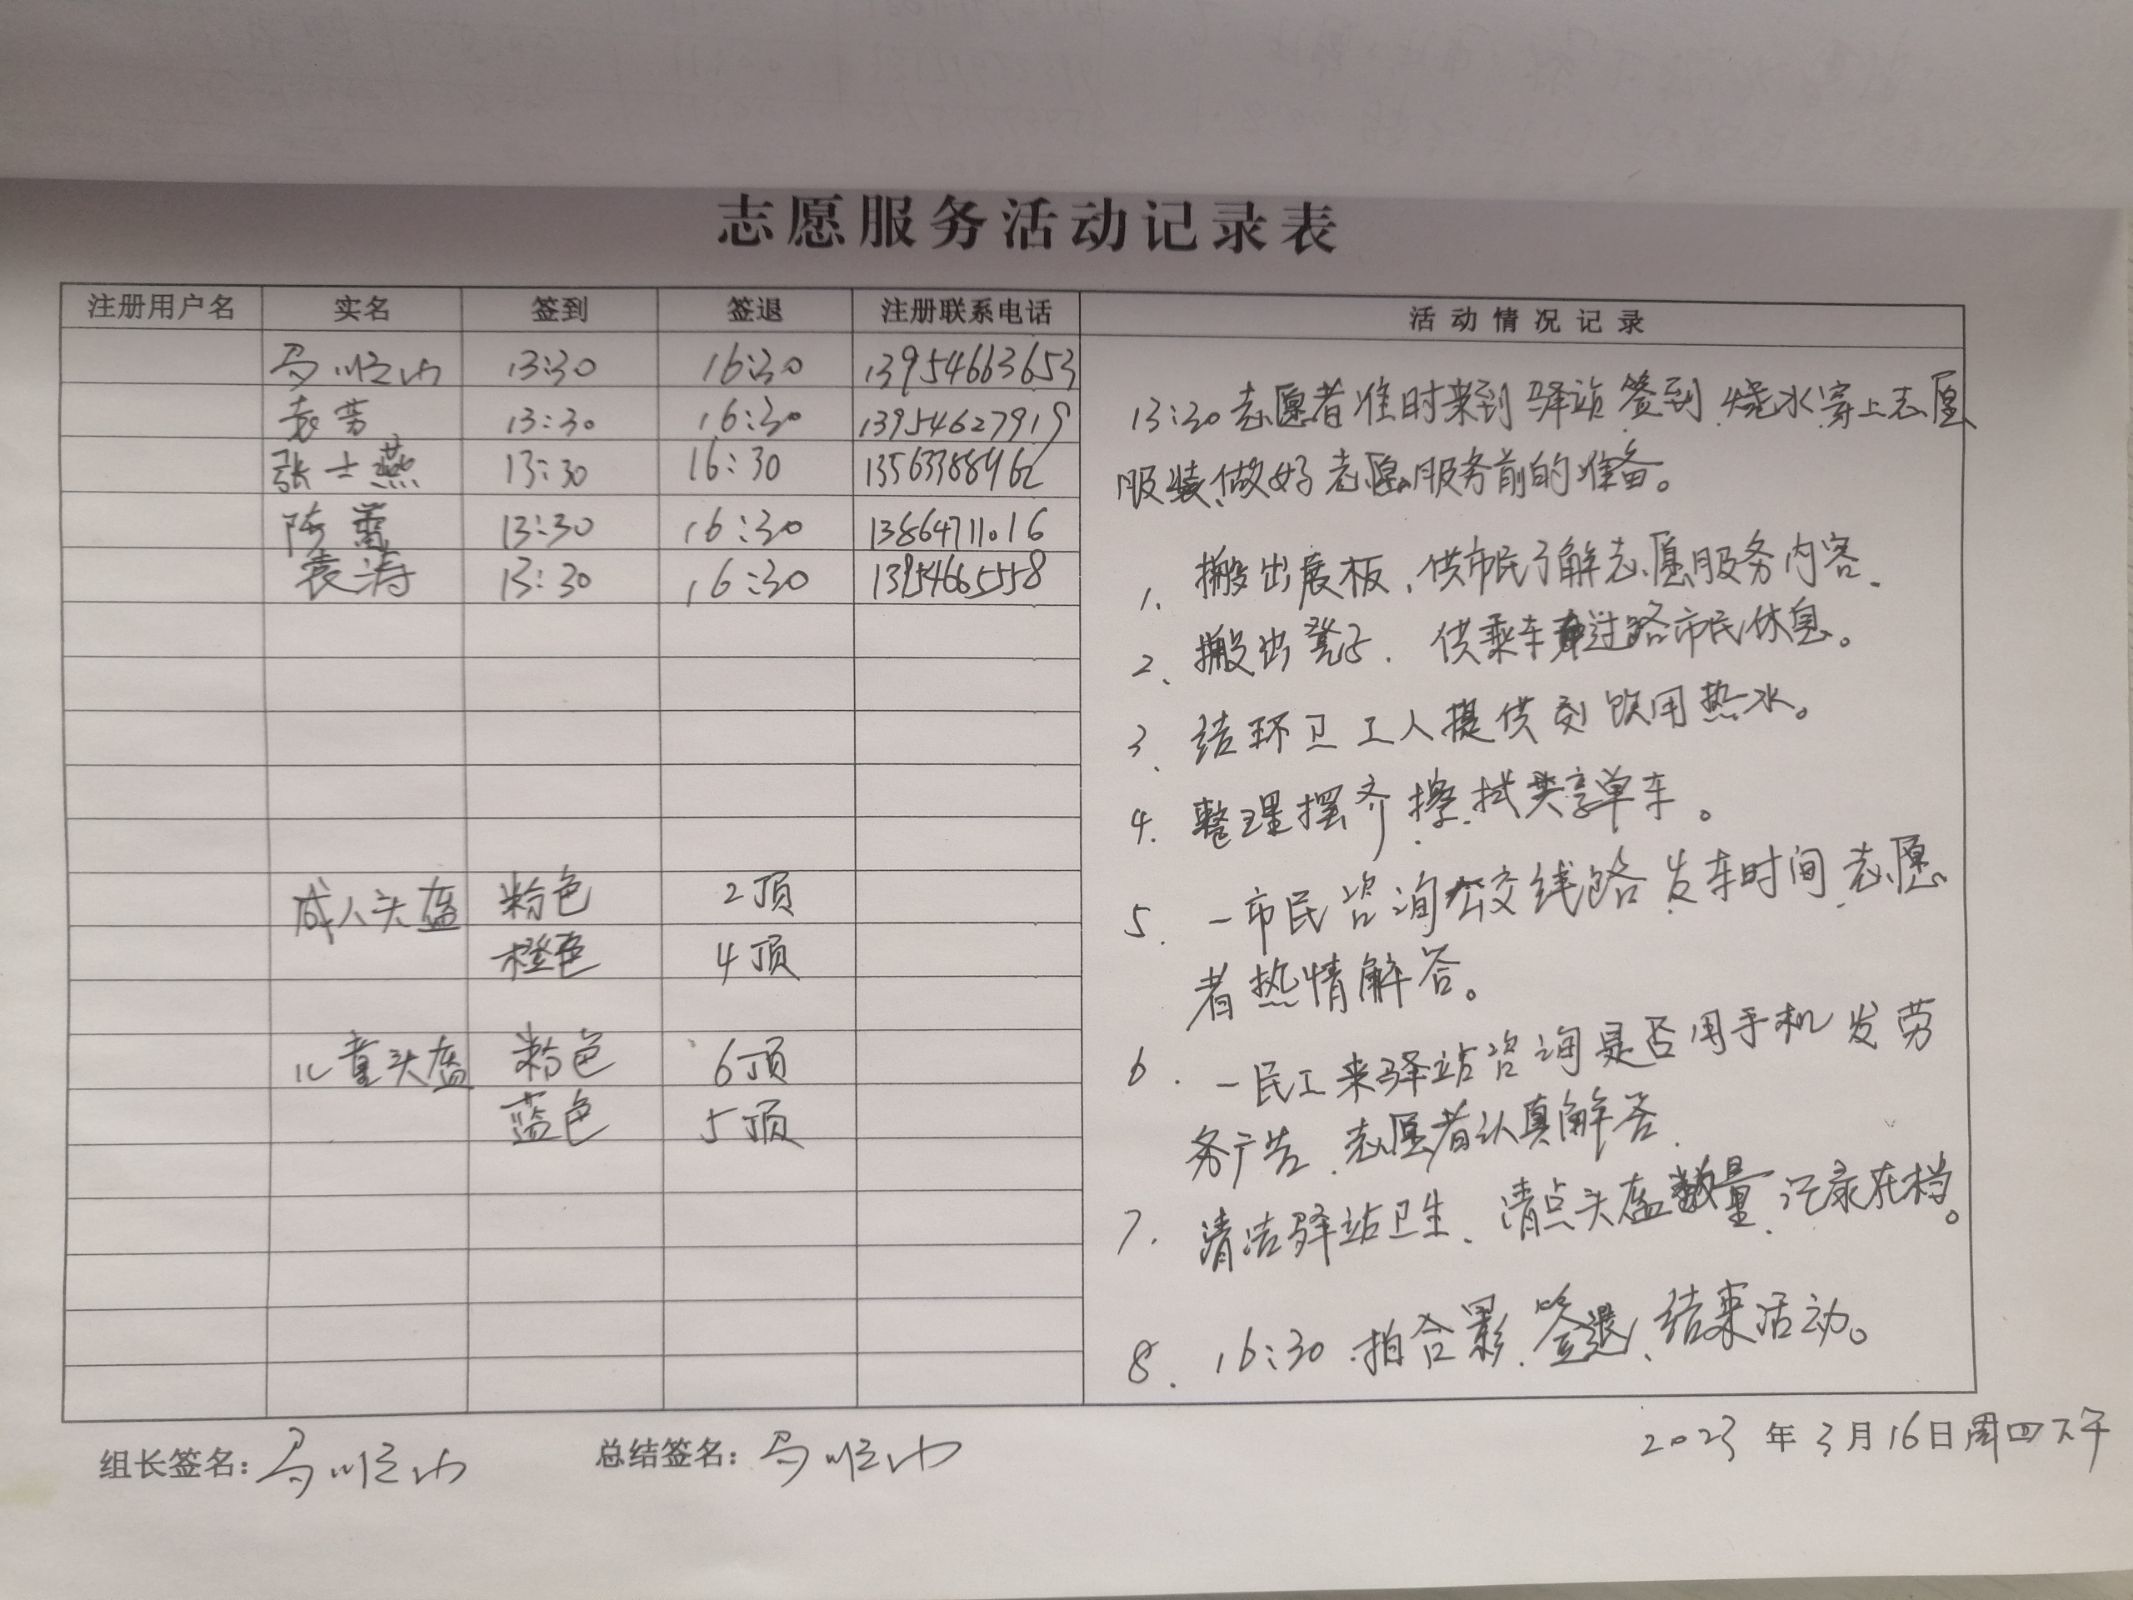 志愿服务活动记录表
注册用户名 实名 签到 签退 注册联系电话 活动情况记录
马顺山 13:30 16:30 13954663653
袁芳 13:30 16:30 13954627919
张士燕 13:30 16:30 13563388962
陈蕾 13:30 16:30 13864711016
袁涛 13:30 16:30 13954665558
成人头盔 粉色 2顶
橙色 4顶
儿童头盔 粉色 6顶
蓝色 5顶
13:30志愿者准时来到驿站签到、烧水、穿上志愿
服装、做好志愿服务前的准备。
1、搬出展板、供市民了解志愿服务内容、
2、搬出凳子、供乘车过路市民休息。
3、给环卫工人提供到饮用热水。
4、整理摆齐、擦拭共享单车。
5、一市民咨询公交线路、发车时间、志愿
者热情解答。
6、一民工来驿站咨询是否用手机发劳
务广告、志愿者认真解答、
7、清洁驿站卫生、清点头盔数量、记录在档。
8、16:30拍合影、签退、结束活动。
组长签名：马顺山 总结签名：马顺山 2023年3月16日周四下午